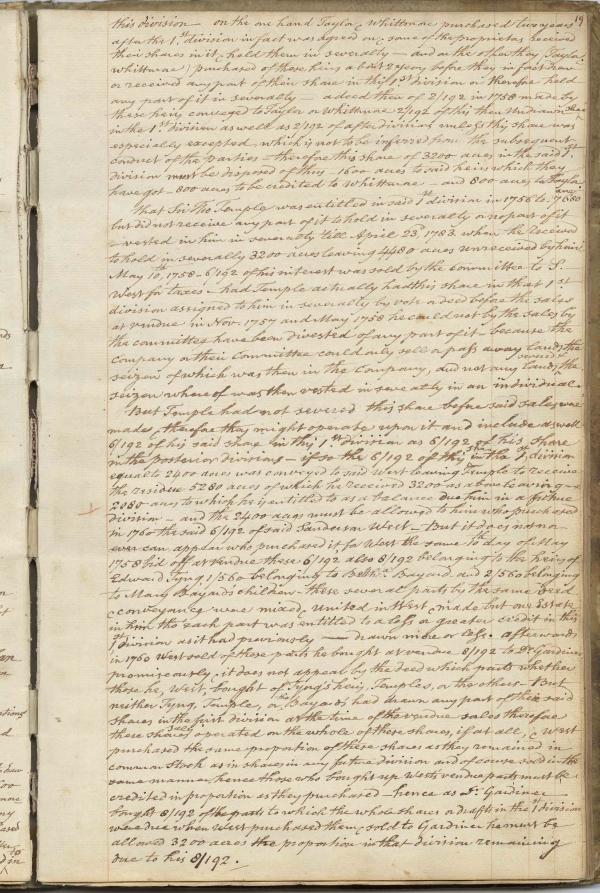 19
this division — on the one hand Taylor & Whittmore purchased two years
after the 1st division in fact was agreed on, some of the proprietors received
their shares in it & held them in severalty — and on the other they (Taylor &
Whittmore) purchased of these heirs about 2 years before they in fact drew
or received any part of their share in this 1st division or therefore held
any part of it in severalty — a deed then of 2/192 in 1758 made by
these heirs conveyed to Taylor & Whittmore 2/192 of this then undrawn share
in the 1st division as well as 2/192 of after divisions unless this share was
especially excepted, which is not to be inferred from the subsequent
conduct of the parties — therefore this share of 3200 acres in the said 1st
division must be disposed of thus — 1600 acres to said heirs which they
have got — 800 acres to be credited to Whittmore — and 800 acres to Taylor
That Sir Tho Temple was entitled in said 1st division in 1756 to 7680 acres
but did not receive any part of it to hold in severalty or no part of it
vested in him in severalty till April 23, 1783 when he received
to hold in severally 3200 acres leaving 4480 acres unreceived by him
May 10th, 1758 – 6/192 of his interest was sold by the committee to S.
West for taxes — had Temple actually had this share in that 1st
division assigned to him in severalty by vote or deed before the sales
at vendue in Nov. 1757 and May 1758 he could not by the sales by
the committee have been divested of any part of it – because the
company or their Committee could only sell & pass away lands the
seizen of which was then in the Company, and not any lands the
seizen whereof was then vested in severalty in an individual.
But Temple had not severed this share before said sales were
made, therefore they might operate upon it and include as well
6/192 of his said share in this 1st division as 6/192 of his share
in the posterior divisions — if so the 6/192 of this share in the 1st division
equal to 2400 acres was conveyed to said West leaving Temple to receive
the residue 5280 acres of which he received 3200 as above leaving
2080 acres to which he is entitled to as a balance due him in a future
division — and the 2400 acres must be allowed to him who purchased
in 1760 the said 6/192 of said Sanderson West — But it does not nor
ever can appear who purchased it, for West the same 10th day of May
1758 bid off at vendue these 6/192 also 8/192 belonging to the heirs of
Edward Tyng, 1/560 belonging to Bayard and 2/560 belonging
to Mary Bayards children — these several parts by the same deed
& conveyance were mixed & united in West & made but one Estate
in him tho each part was entitled to a less or greater credit in this
1st division as it had previously — drawn more or less. afterwards
in 1760 West sold of those parts he bought at vendue 8/192 to Dr Gardiner
promiscuously, it does not appear by the deed which parts whether
those he, West, bought of Tyng's heirs, Temples, or the others — But
neither Tyng, Temple, or the Bayards had drawn any part of their said
shares in the first division at the time of the vendue sales therefore
these sales operated on the whole of these shares, if at all, & West
purchased the same proportion of these shares as they remained in
common stock as in shares in any future division and of course sold in the
same manner hence those who bought up Wests vendue parts must be
credited in proportion as they purchased — hence as Dr Gardiner
bought 8/192 of the parts to which the whole shares or drafts in the 1st division
were due when West purchased them & sold to Gardiner he must be
allowed 3200 acres the proportion in that division remaining
due to his 8/192.